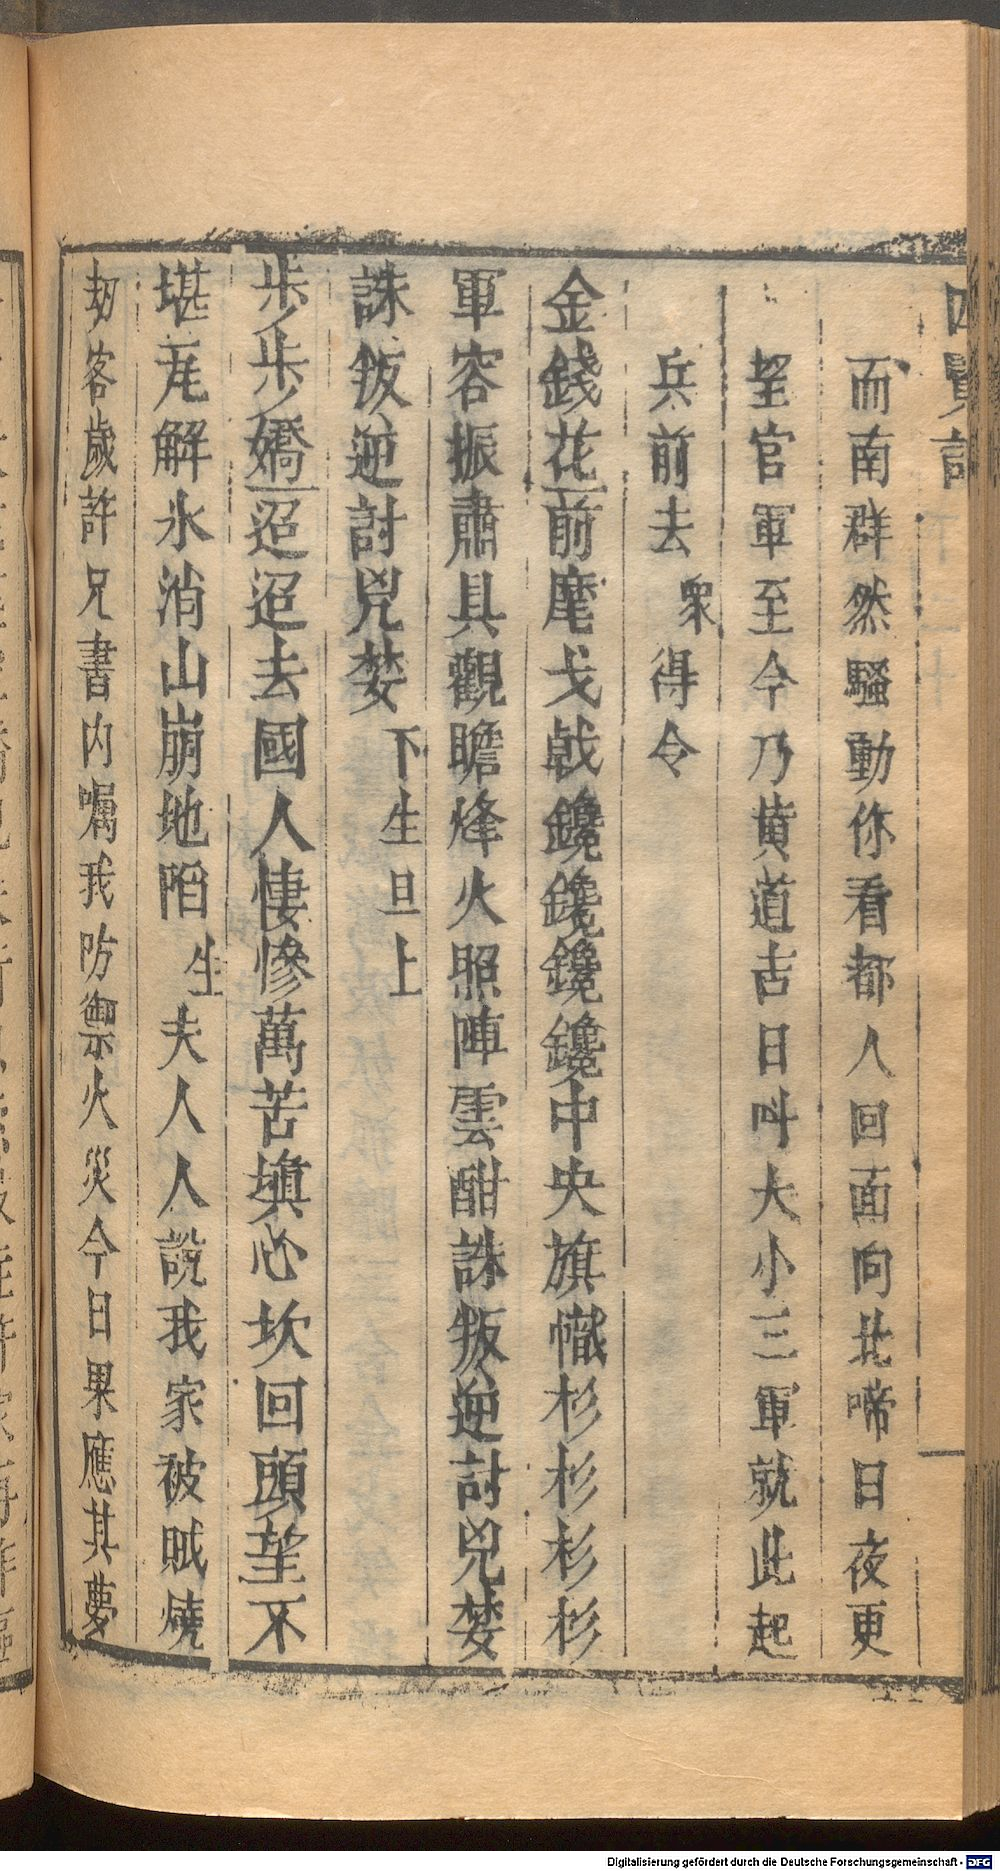 四賢記
而南群然騷動你看都人回面向北啼日夜更
望官軍至今乃黄道吉日呌大小三軍就此起
兵前去 衆 得令
金錢花 前麾戈戟鑱鑱鑱鑱中央旗幟杉杉杉杉
軍容振肅具觀瞻烽火照陣雲酣誅叛逆討兇婪
誅叛逆討兇婪 下生旦上
步步嬌 迢迢去國人悽慘萬苦塡心坎回頭望不
堪瓦解氷消山崩地陷 生 夫人人說我家被賊燒
劫客歲許兄書内嘱我防禦火災今日果應其夢
Digitalisierung gefördert durch die Deutsche Forschungsgemeinschaft - DFG